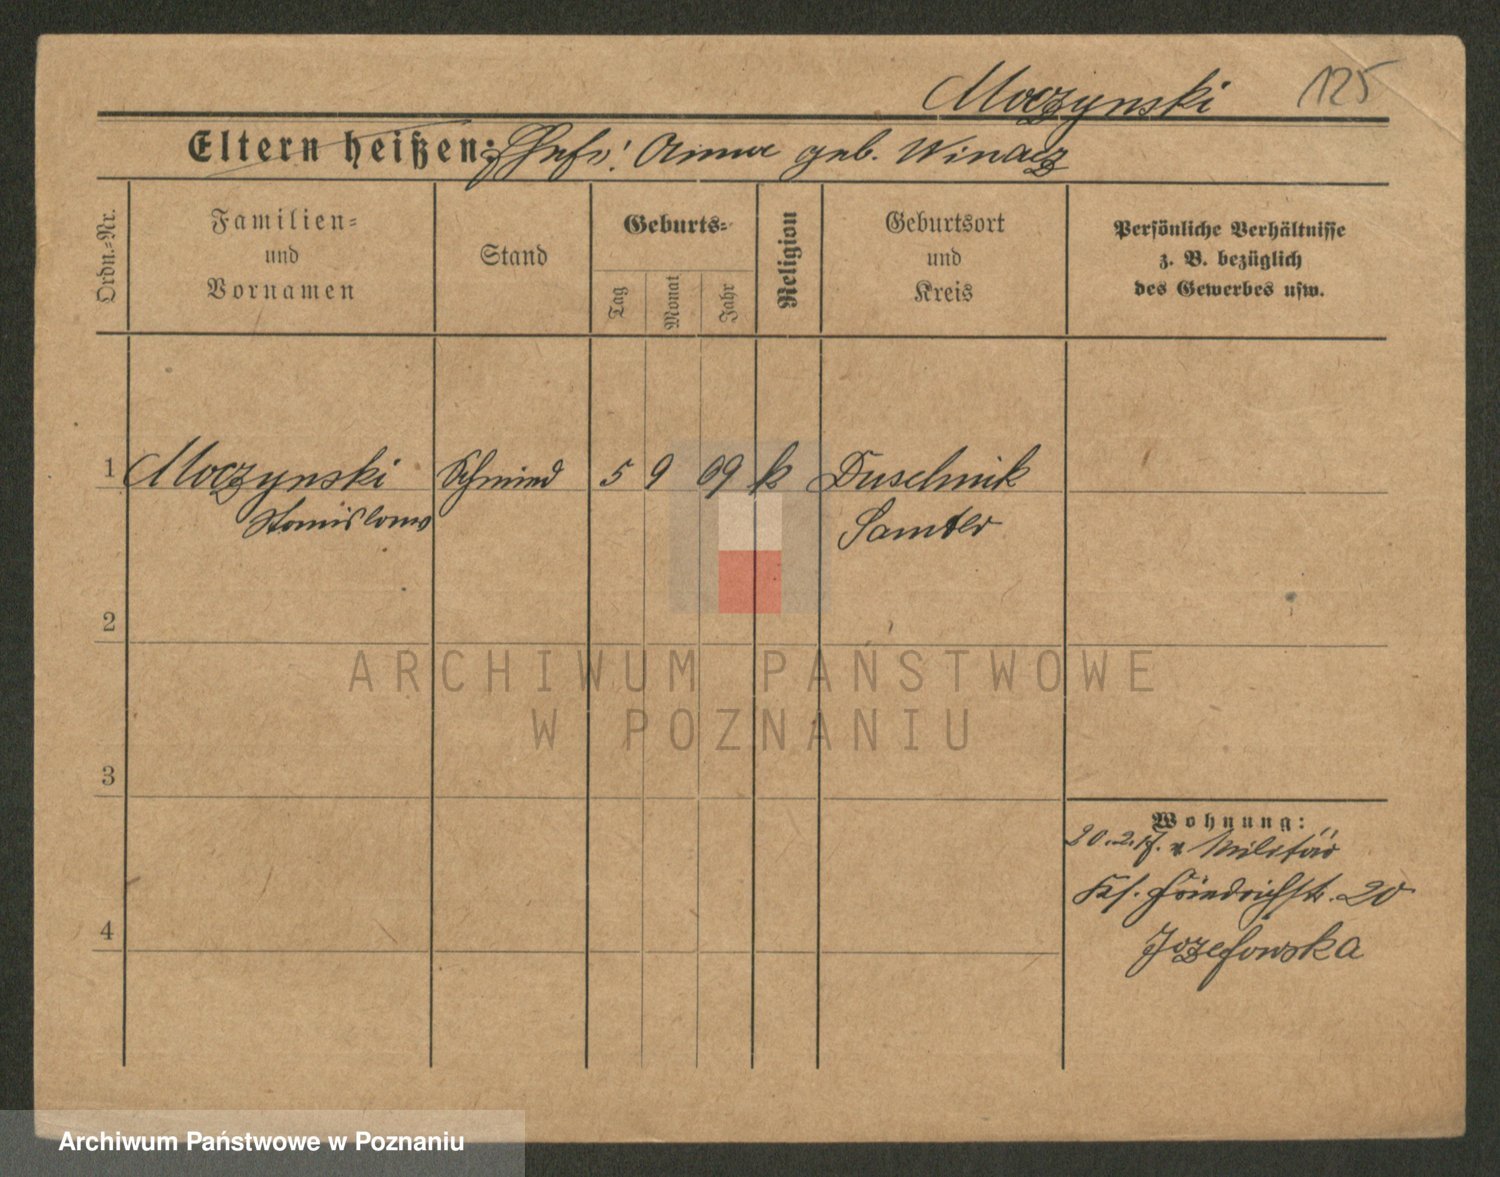 Moczynski 125
Eltern heißen: Ehefr: Anna geb. Winacz
Ordn.=Nr.
Familien=
und
Vornamen
Stand
Geburts=
Tag
Monat
Jahr
Religion
Geburtsort
und
Kreis
Persönliche Verhältnisse
z. B. bezüglich
des Gewerbes usw.
1 Moczynski Schmied 5 9 09 k Duschnik
Stanislaus Samter
2
3
4
Wohnung:
20.2.17. v Militär
Ks. Friedrichstr. 20
Jozefowska
ARCHIWUM PAŃSTWOWE
W POZNANIU
Archiwum Państwowe w Poznaniu